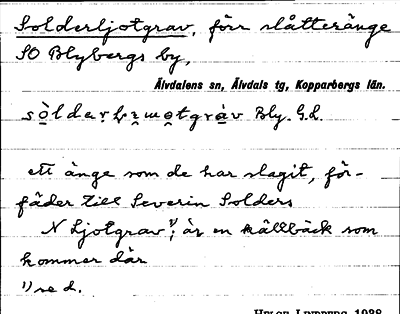 Solderljotgrav, förr slåtteränge
SO Blybergs by,
Älvdalens sn, Älvdals tg, Kopparbergs län.
Bly. G.L.
ett änge som de har slagit, för-
fäder till Severin Solders
N Ljotgrav ¹⁾, är en källbäck som
kommer där
¹⁾ se d.